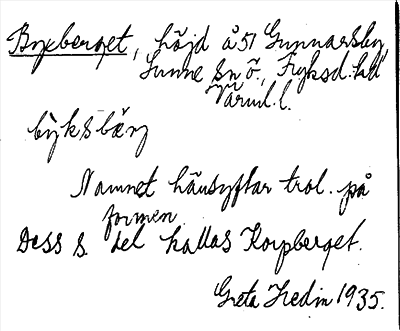 Byxberget, höjd å 51 Gunnarsby,
Sunne sn ö., Fryksd. hd
Värml. l.
býksbärj
Namnet hänsyftar trol. på
formen.
Dess s. del kallas Korpberget.
Greta Hedin 1935.